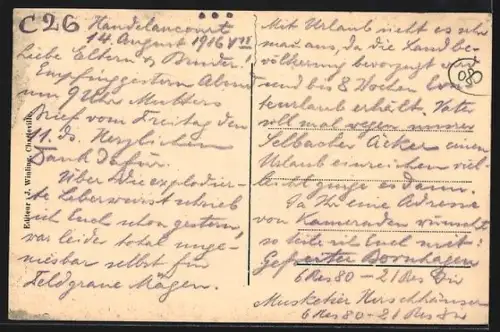 C26
Handelancourt
14. August 1916 VII
Liebe Eltern & Bruder!
Empfing gestern Abend
um 9 Uhr Mutters
Brief vom Freitag den
11. ds. Herzlichen
Dank dafür.
Über die explodier-
te Leberwurst schrieb
ich Euch schon gestern,
war leider total unge-
niesbar selbst für
Feldgraue Mägen.
Mit Urlaub sieht es sehr
mau aus, da die Landbe-
völkerung bevorzugt
und bis 8 Wochen Ern-
teurlaub erhält. Vater
soll mal wegen unserer
Selbacher Äcker einen
Urlaub einreichen viel-
leicht ginge es dann.
Da Ihr eine Adresse
von Kameraden wünscht
so teile ich Euch mit:
Gefreiter Bornhagen
6 Res 80 – 21 Res Div
Musketier Herschhäuser
6 Res 80 – 21 Res Div
80
Editeur J. Winling, Charleville